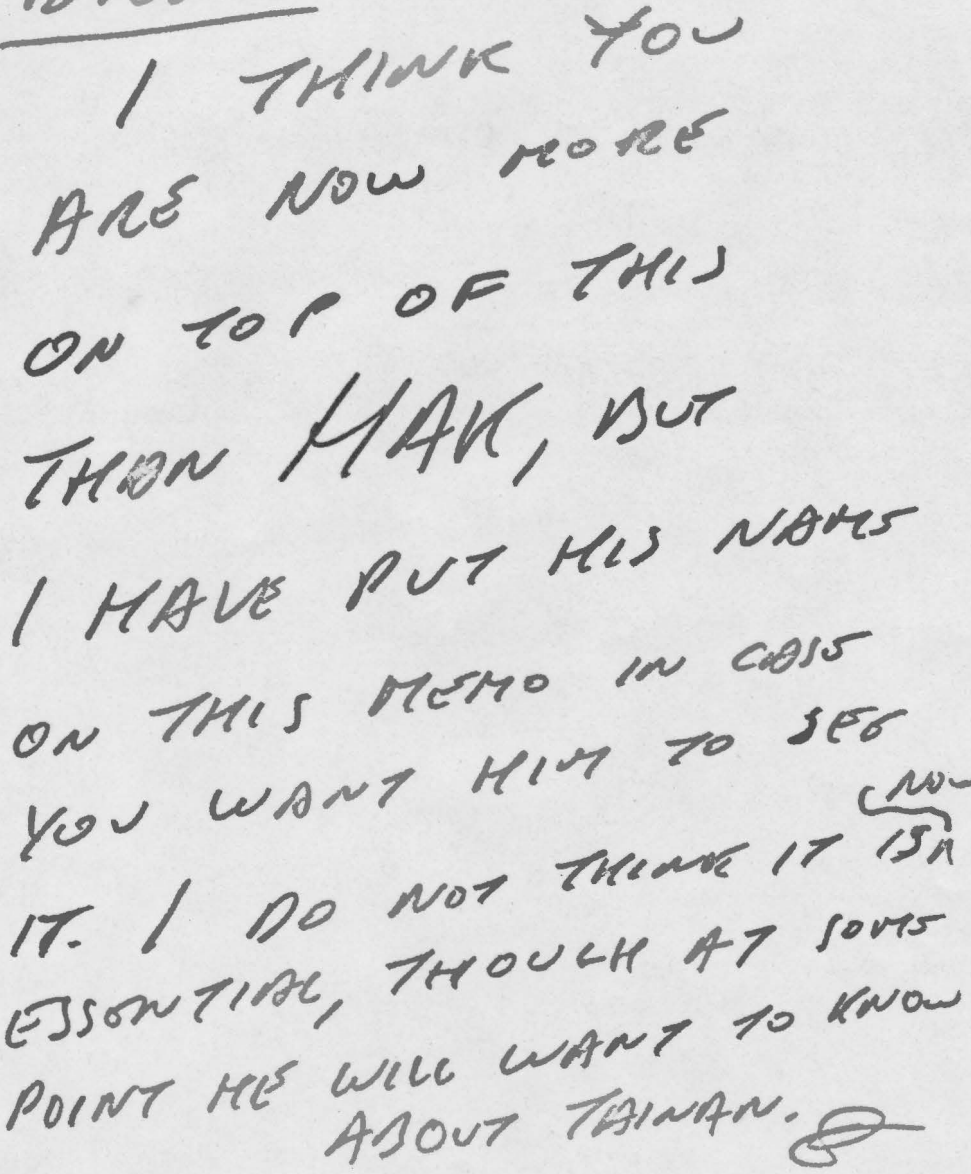 I THINK YOU
ARE NOW MORE
ON TOP OF THIS
THAN HAK, BUT
I HAVE PUT HIS NAME
ON THIS MEMO IN CASE
YOU WANT HIM TO SEE
NOW
IT. I DO NOT THINK IT IS
ESSENTIAL, THOUGH AT SOME
POINT HE WILL WANT TO KNOW
ABOUT TAINAN.